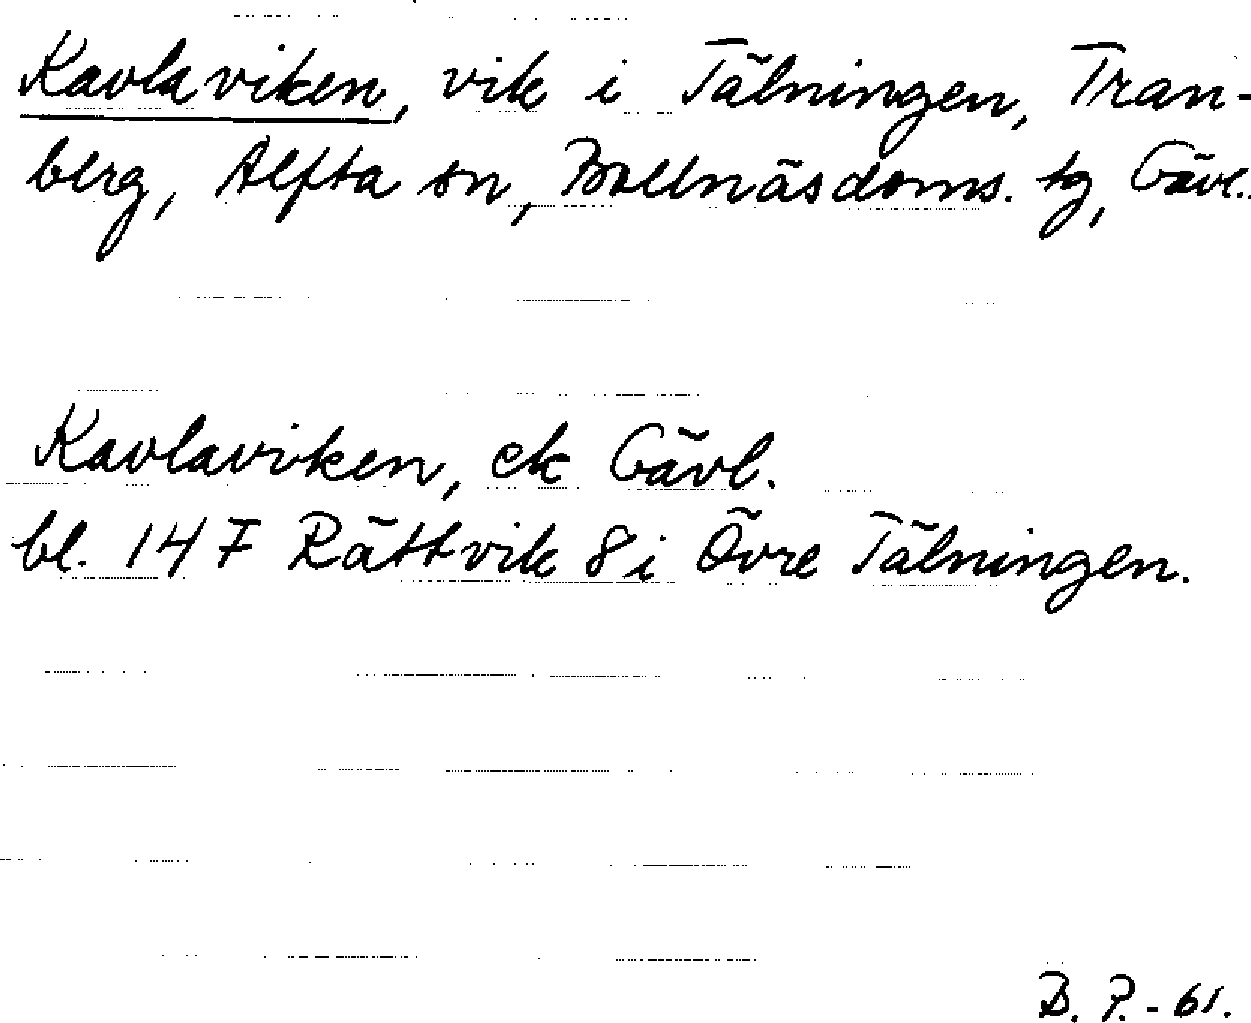 Kavlaviken, vik i Tälningen, Tran-
berg, Alfta sn, Bollnäs doms. tg, Gävl.
Kavlaviken, ek Gävl.
bl. 14 F Rättvik 8 i Övre Tälningen.
B. P. - 61.